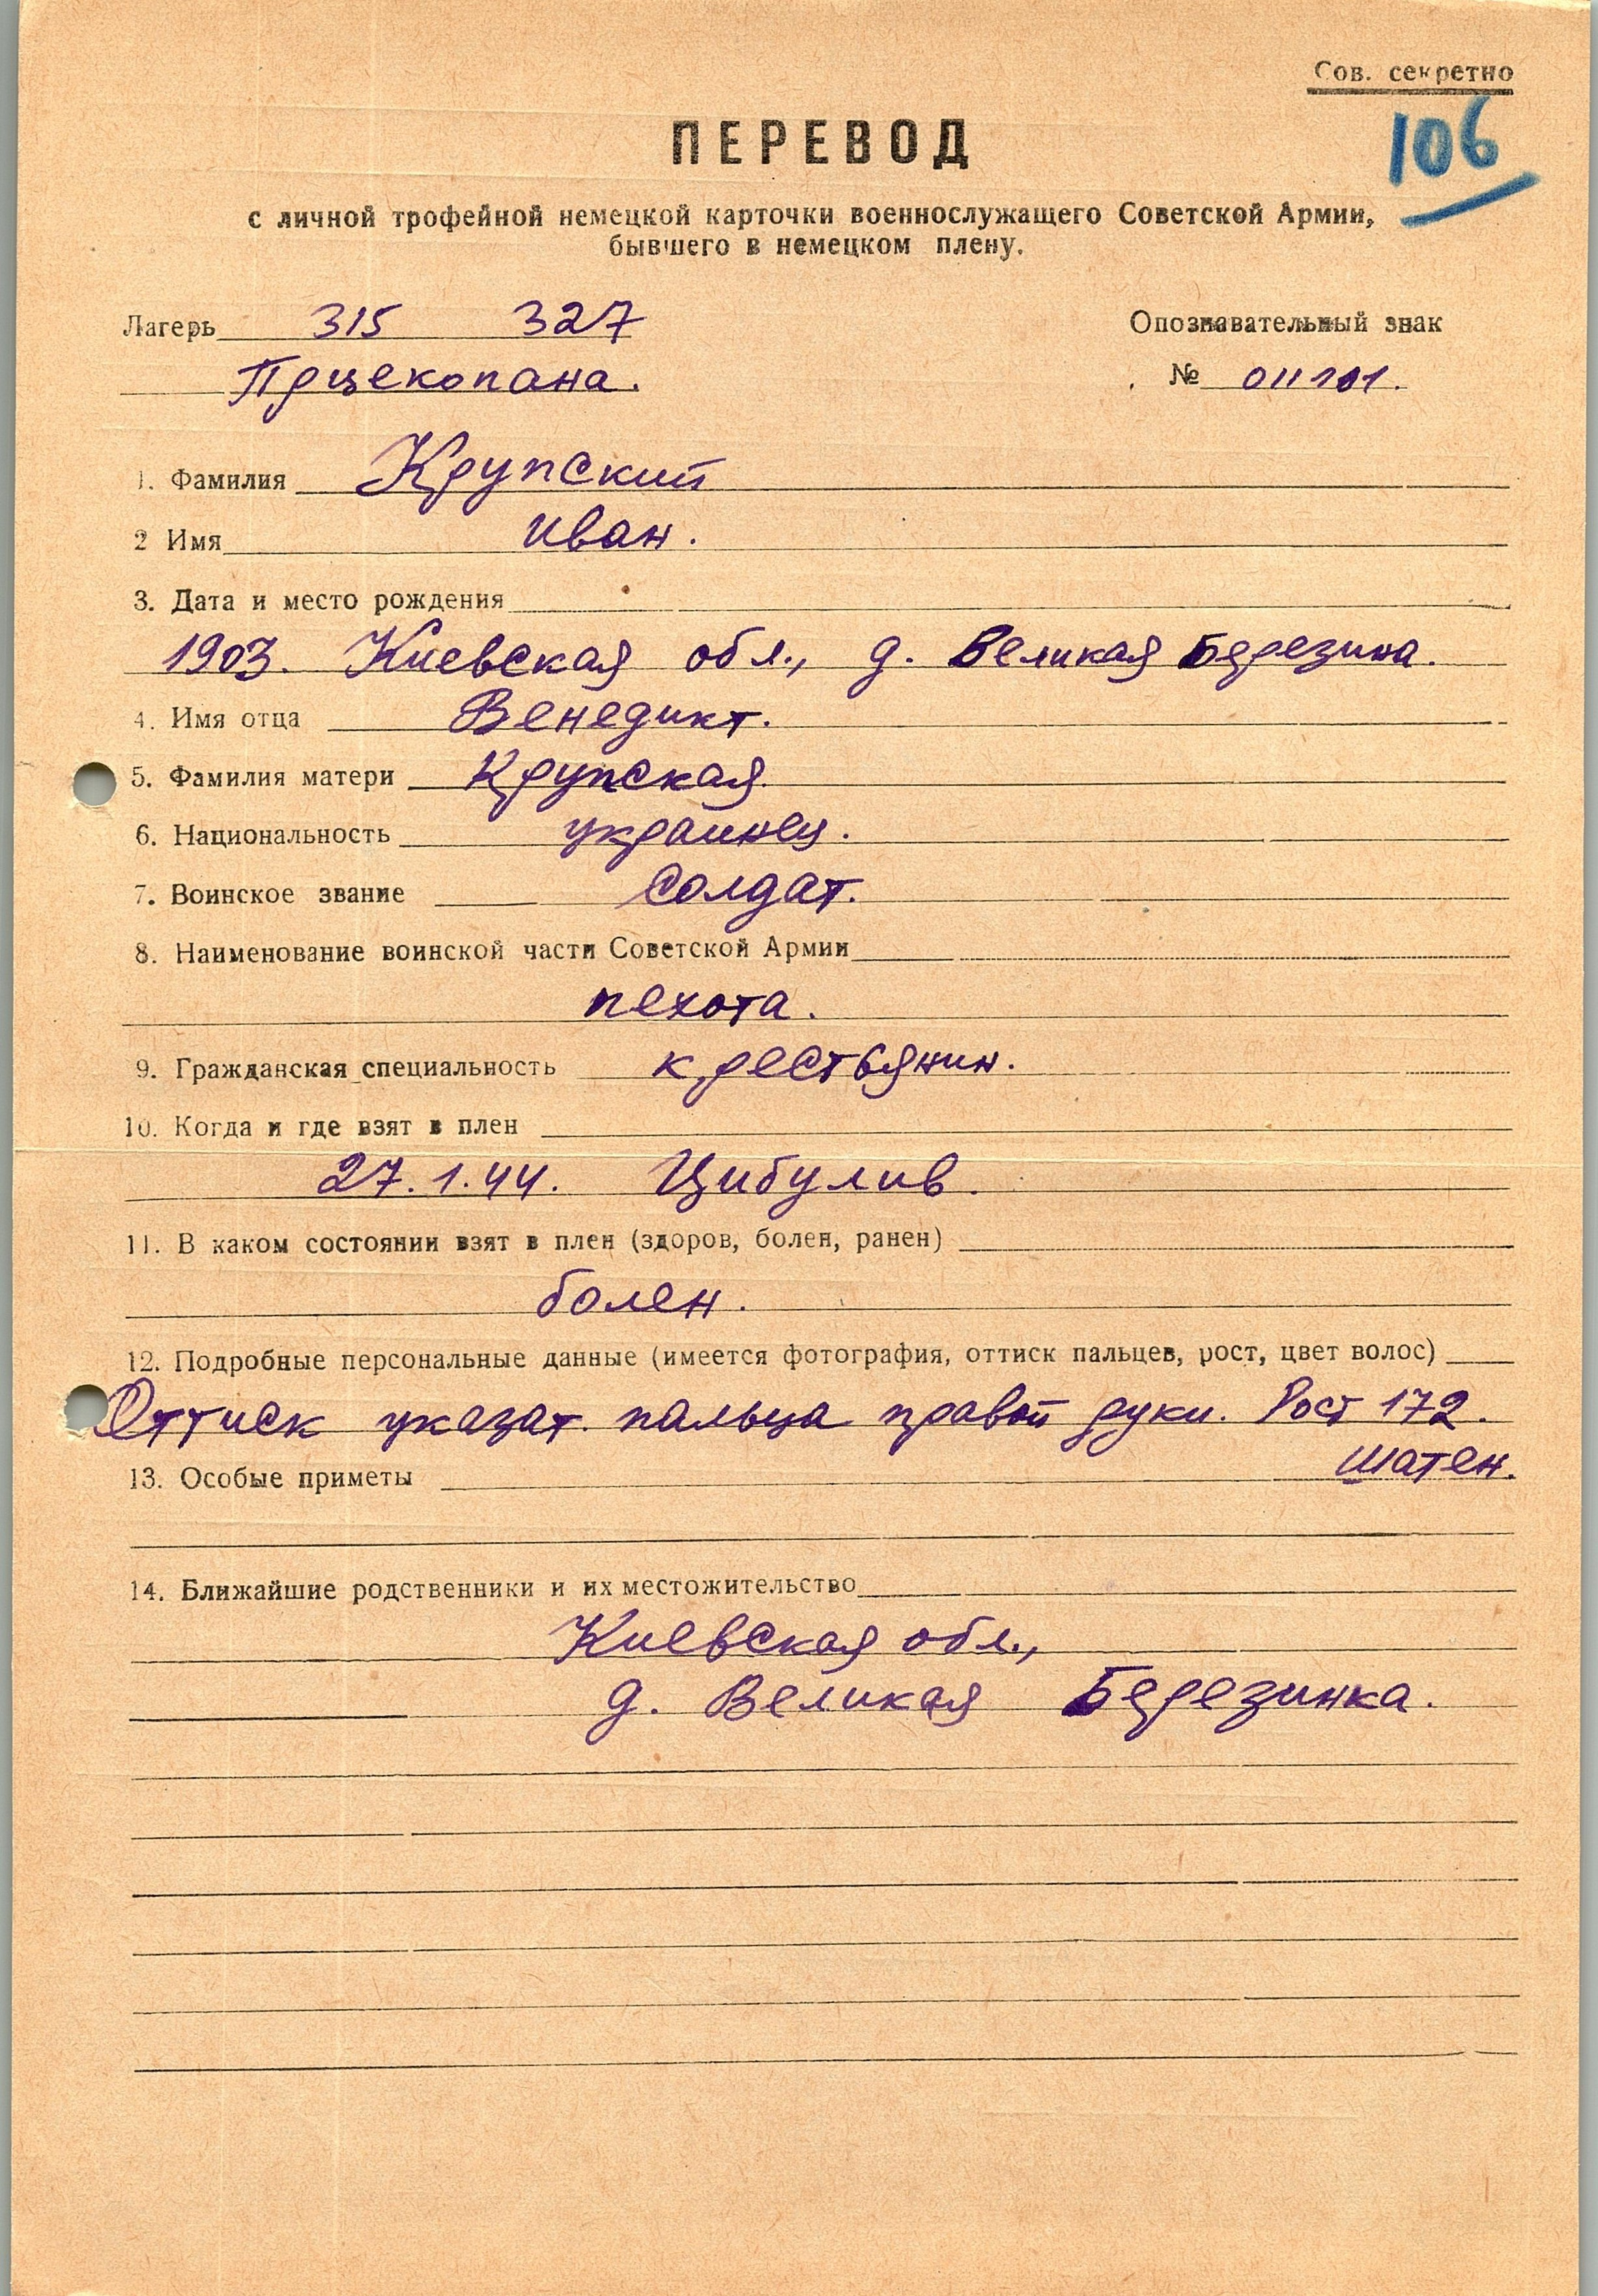 Сов. секретно
106
ПЕРЕВОД
с личной трофейной немецкой карточки военнослужащего Советской Армии,
бывшего в немецком плену.
Лагерь 315 327
Опознавательный знак
Прцекопана.
№ 011101.
1. Фамилия Крупский
2 Имя Иван.
3. Дата и место рождения
1903. Киевская обл., д. Великая Березина.
4. Имя отца Венедикт.
5. Фамилия матери Крупская.
6. Национальность украинец.
7. Воинское звание Солдат.
8. Наименование воинской части Советской Армии
пехота.
9. Гражданская специальность крестьянин.
10. Когда и где взят в плен
27.1.44. Цибулив.
11. В каком состоянии взят в плен (здоров, болен, ранен)
болен.
12. Подробные персональные данные (имеется фотография, оттиск пальцев, рост, цвет волос)
Оттиск указат. пальца правой руки. Рост 172.
шатен.
13. Особые приметы
14. Ближайшие родственники и их местожительство
Киевская обл.,
д. Великая Березинка.